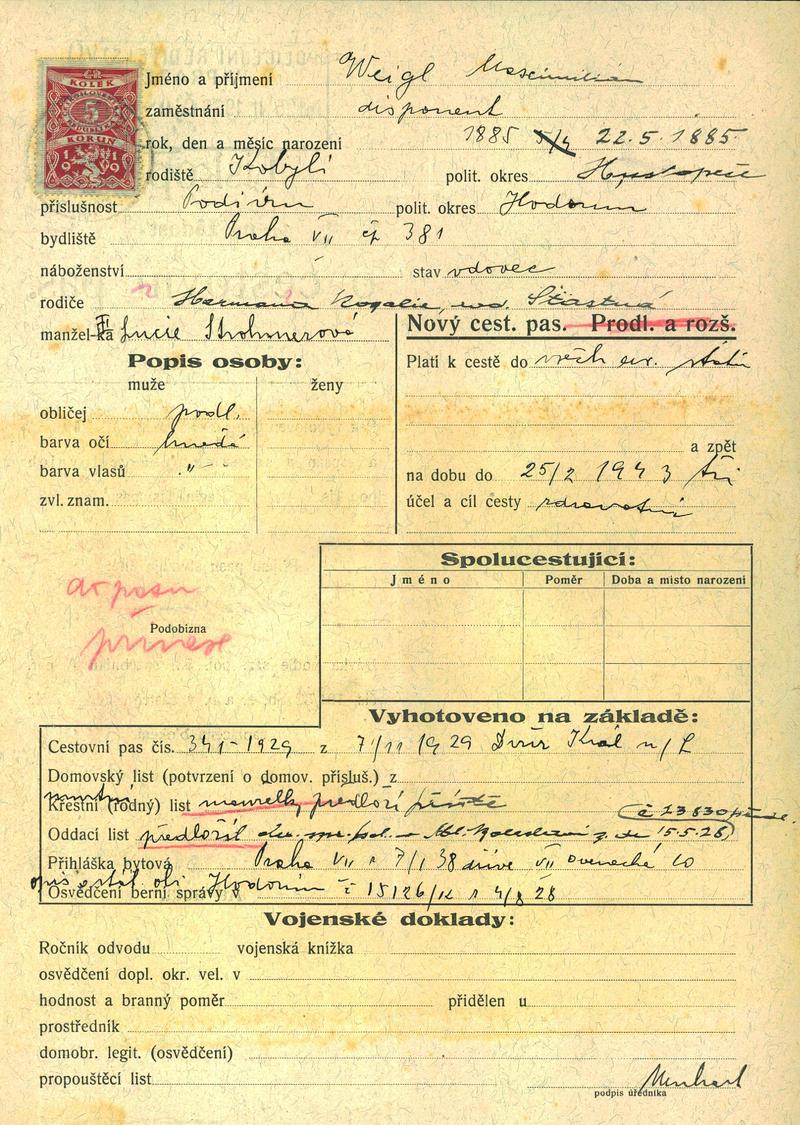 KOLEK
5
KORUN
1919
Jméno a příjmení Weigl Maximilián
zaměstnání disponent
rok, den a měsíc narození 1885 22.5.1885
rodiště Kobylí polit. okres Hustopeče
příslušnost Podivín polit. okres Hodonín
bydliště Praha VII čp 381
náboženství stav vdovec
rodiče Hermann Rozalie, roz. Šťastná
manžel-ka II Lucie Strohmerová
Nový cest. pas. Prodl. a rozš.
Popis osoby:
muže ženy
Platí k cestě do všech evr. států
obličej podl.
barva očí hnědá
a zpět
barva vlasů "
na dobu do 25/2 1943 tři
zvl. znam.
účel a cíl cesty zdravotní
Spolucestující:
Jméno Poměr Doba a místo narození
do pasu
Podobizna
přinese
Vyhotoveno na základě:
Cestovní pas čís. 341-1929 z 7/11 1929 Dvůr Král n/L
Domovský list (potvrzení o domov. přísluš.) z
Křestní (rodný) list předloží příště
č 23830
Oddací list předložil 15.5.28)
Přihláška bytová Praha VII 7/1 38 dříve VII Ovenecká 10
opis
Osvědčení berní správy v Hodonín č 15126/12 4/8 28
Vojenské doklady:
Ročník odvodu vojenská knížka
osvědčení dopl. okr. vel. v
hodnost a branný poměr přidělen u
prostředník
domobr. legit. (osvědčení)
propouštěcí list
podpis úředníka